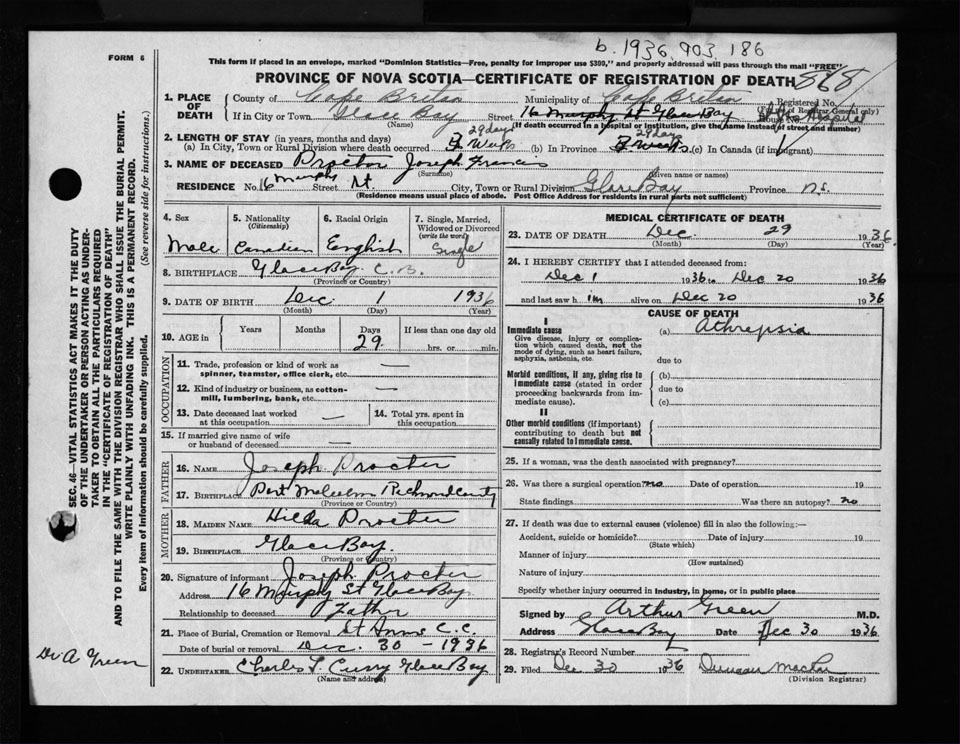 b. 1936, 903, 186
FORM 6
This form if placed in an envelope, marked "Dominion Statistics—Free, penalty for improper use $300," and properly addressed will pass through the mail "FREE"
PROVINCE OF NOVA SCOTIA—CERTIFICATE OF REGISTRATION OF DEATH 868
1. PLACE OF DEATH
County of Cape Breton Municipality of Cape Breton Registered No.
(For use of Registrar General only)
If in City or Town Glace Bay Street 16 Murphy St Glace Bay Hospital
(Name) (If death occurred in a hospital or institution, give the name instead of street and number)
2. LENGTH OF STAY (in years, months and days) 29 days 29 days
(a) In City, Town or Rural Division where death occurred Weeks (b) In Province Weeks (c) In Canada (if immigrant)
3. NAME OF DECEASED Procter Joseph Francis
(Surname) (Given name or names)
RESIDENCE No. 16 Murphy Street St. City, Town or Rural Division Glace Bay Province N.S.
(Residence means usual place of abode. Post Office Address for residents in rural parts not sufficient)
4. Sex Male
5. Nationality (Citizenship) Canadian
6. Racial Origin English
7. Single, Married, Widowed or Divorced (write the word) Single
8. BIRTHPLACE Glace Bay C.B.
(Province or Country)
9. DATE OF BIRTH Dec. 1 1936
(Month) (Day) (Year)
10. AGE in Years Months Days 29 If less than one day old hrs. or min.
OCCUPATION
11. Trade, profession or kind of work as spinner, teamster, office clerk, etc. —
12. Kind of industry or business, as cotton-mill, lumbering, bank, etc. —
13. Date deceased last worked at this occupation —
14. Total yrs. spent in this occupation
15. If married give name of wife or husband of deceased —
FATHER
16. NAME Joseph Procter
17. BIRTHPLACE Port Malcolm Richmond County
(Province or Country)
MOTHER
18. MAIDEN NAME Hilda Procter
19. BIRTHPLACE Glace Bay.
(Province or Country)
20. Signature of informant Joseph Procter
Address 16 Murphy St Glace Bay
Relationship to deceased Father
21. Place of Burial, Cremation or Removal St Anns C.C.
Date of burial or removal Dec. 30 - 1936
22. UNDERTAKER Charles L. Curry Glace Bay
(Name and address)
MEDICAL CERTIFICATE OF DEATH
23. DATE OF DEATH Dec. 29 1936
(Month) (Day) (Year)
24. I HEREBY CERTIFY that I attended deceased from:
Dec 1 1936 to Dec 20 1936
and last saw him alive on Dec 20 1936
CAUSE OF DEATH
I
Immediate cause (a) Athrepsia
Give disease, injury or complication which caused death, not the mode of dying, such as heart failure, asphyxia, asthenia, etc.
due to
Morbid conditions, if any, giving rise to immediate cause (stated in order proceeding backwards from immediate cause).
(b)
due to
(c)
II
Other morbid conditions (if important) contributing to death but not causally related to immediate cause.
25. If a woman, was the death associated with pregnancy?
26. Was there a surgical operation? no Date of operation 19
State findings Was there an autopsy? no
27. If death was due to external causes (violence) fill in also the following:—
Accident, suicide or homicide? Date of injury 19
(State which)
Manner of injury
(How sustained)
Nature of injury
Specify whether injury occurred in industry, in home, or in public place
Signed by Arthur Green M.D.
Address Glace Bay Date Dec 30 1936
28. Registrar's Record Number
29. Filed Dec 30 1936 Duncan
(Division Registrar)
SEC. 46—VITAL STATISTICS ACT MAKES IT THE DUTY
OF THE UNDERTAKER OR PERSON ACTING AS UNDER-
TAKER TO OBTAIN ALL THE PARTICULARS REQUIRED
IN THE "CERTIFICATE OF REGISTRATION OF DEATH"
AND TO FILE THE SAME WITH THE DIVISION REGISTRAR WHO SHALL ISSUE THE BURIAL PERMIT.
WRITE PLAINLY WITH UNFADING INK. THIS IS A PERMANENT RECORD.
Every item of information should be carefully supplied. (See reverse side for instructions.)
Dr A Green